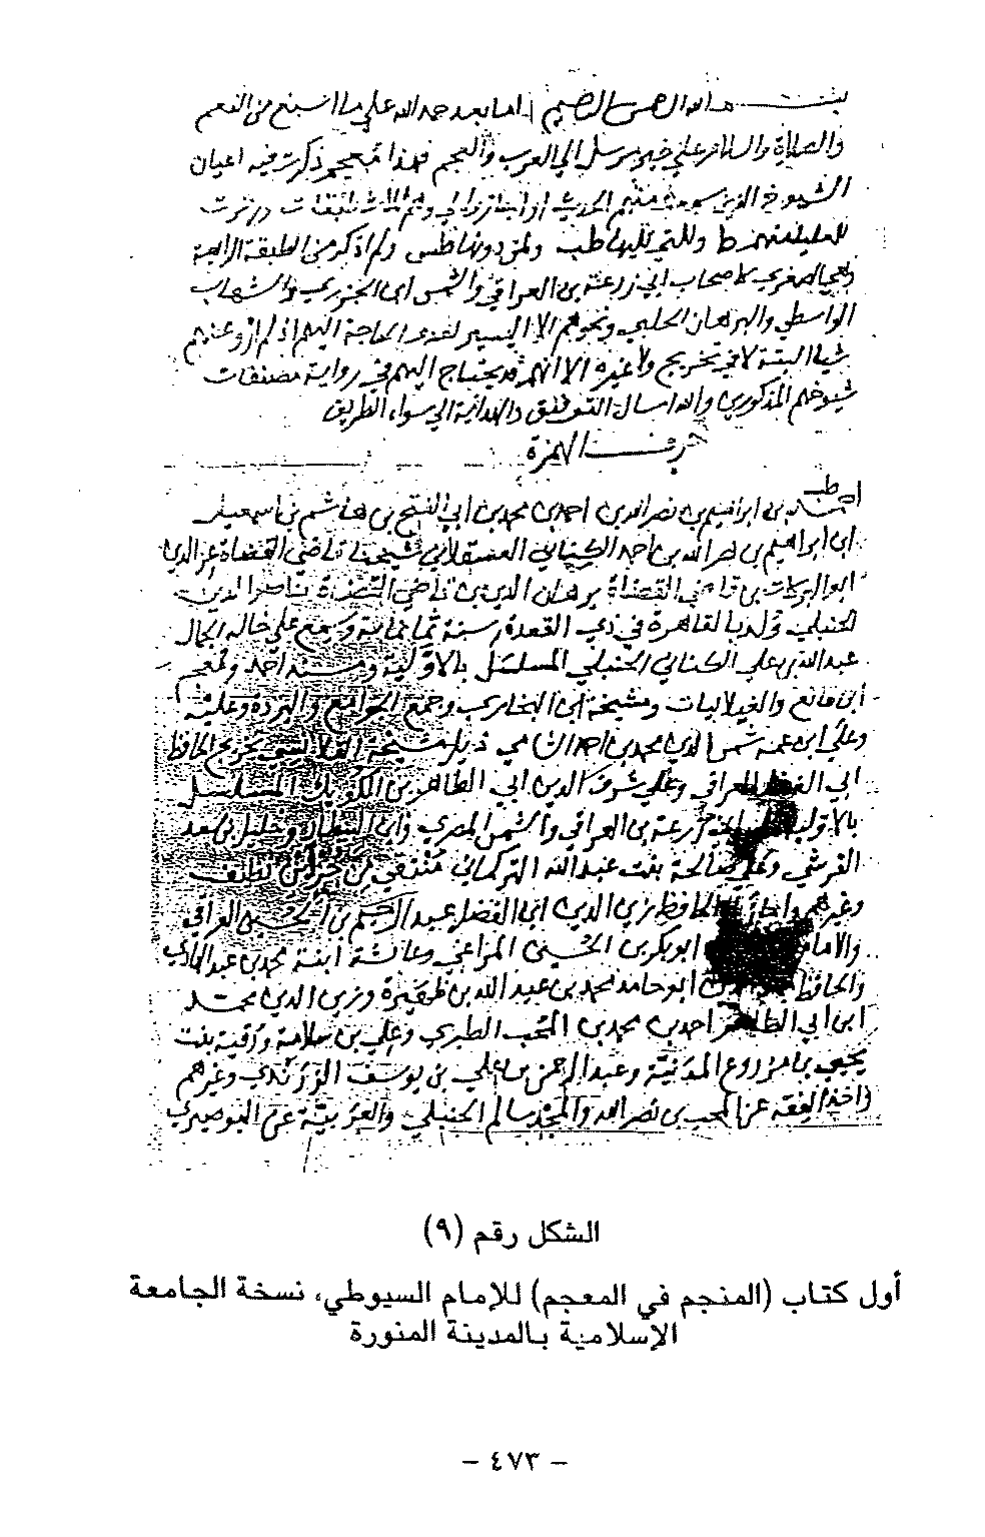 بسم الله الرحمن الرحيم اما بعد حمد الله على ما اسبغ من النعم
والصلاة والسلام على خير مرسل الى العرب والعجم فهذا معجم ذكرت فيه اعيان
الشيوخ الذين سمعت منهم الحديث او اجازوا لي وهم ثلاث طبقات ورمزت
للعليا منهم ط وللتي تليها طب ولمن دونها طس ولم اذكر من الطبقة الرابعة
وهي الصغرى كاصحاب ابي زرعة بن العراقي والشمس ابن الجزري والشهاب
الواسطي والبرهان الحلبي ونحوهم الا اليسير لعدم الحاجة اليهم اذ لم ارو عنهم
شيا البتة لا في تخريج ولا غيره الا انهم قد يحتاج اليهم في رواية مصنفات
شيوخهم المذكورين والله اسال التوفيق والهداية الى سواء الطريق
حرف الهمزة
طب
احمد بن ابراهيم بن نصر الله بن احمد بن محمد بن ابي الفتح بن هاشم بن اسمعيل
ابن ابراهيم بن نصر الله بن احمد الكناني العسقلاني شيخنا قاضي القضاة عز الدين
ابو البركات بن قاضي القضاة برهان الدين بن قاضي القضاة ناصر الدين
الحنبلي ولد بالقاهرة في ذي القعدة سنة ثمانمائة وسمع على خاله الجمال
عبد الله بن علي الكناني الحنبلي المسلسل بالاولية ومسند احمد ومعجم
ابن قانع والغيلانيات ومشيخة ابن البخاري وجمع الجوامع والبردة وعليه
وعلى ابن عمه شمس الدين محمد بن احمد الشامي ذيل مشيخة القلانسي تخريج الحافظ
ابي الفضل العراقي وعلى شرف الدين ابي الطاهر بن الكويك المسلسل
بالاولية زرعة بن العراقي والشمس المصري وابن البيطار وخليل بن سعد
القرشي وعلى صالحة بنت عبد الله التركماني منتقى من
وغيرهم واجاز له الحافظ زين الدين ابي الفضل عبد الرحيم بن الحسين العراقي
والامام ابو بكر بن الحسين المراغي وعائشة ابنة محمد بن عبد الهادي
والحافظ ابو حامد محمد بن عبد الله بن ظهيرة وزين الدين محمد
ابن ابي الطاهر احمد بن محمد بن المحب الطبري وعلي بن سلامة ورقية بنت
يحيى بن مزروع المدنية وعبد الرحمن بن علي بن يوسف الزرندي وغيرهم
واخذ الفقه عن المحب بن نصر الله والمجد سالم الحنبلي والعربية عن البوصيري
الشكل رقم (٩)
أول كتاب (المنجم في المعجم) للإمام السيوطي، نسخة الجامعة
الإسلامية بالمدينة المنورة
- ٤٧٣ -